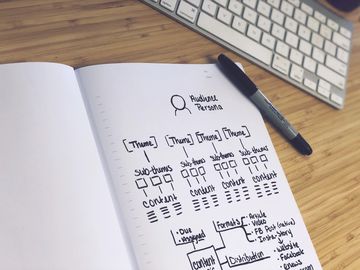 Audience
Persona
[Theme] [Theme] [Theme] [Theme]
sub-themes sub-thems sub-thems sub-thems
content content content content
• Due
• Assigned
Formats
Article
Video
FB Post (native)
Insta-Story
Content
Distribution
• Website
• Facebook